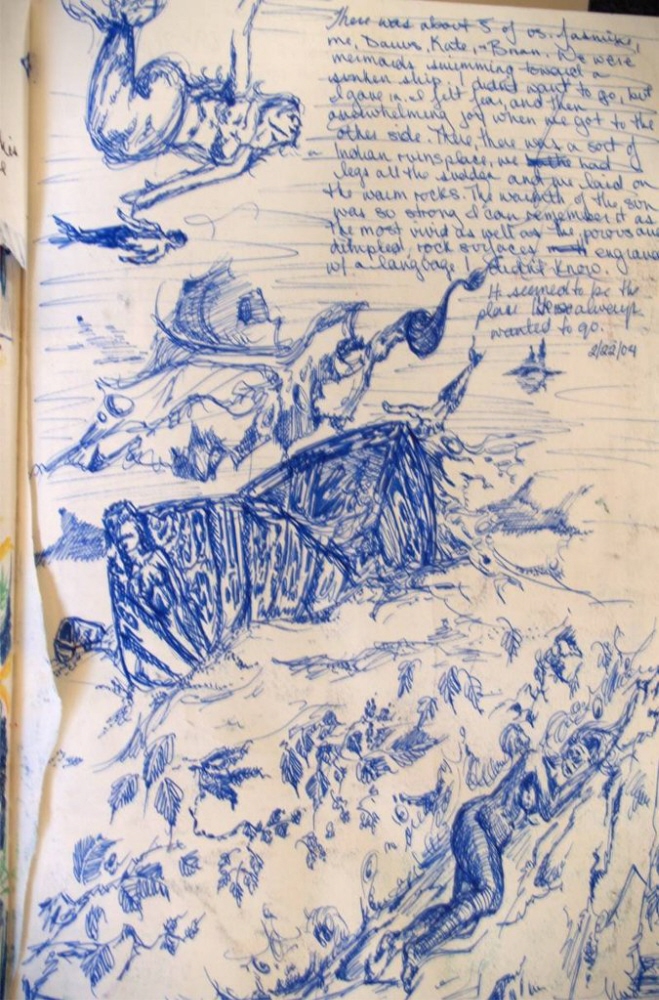 There was about 5 of us. Jasmine,
me, Dawn, Kate, + Brian. We were
mermaids swimming toward a
sunken ship. I didnt want to go, but
I gave in. I felt fear, and then
overwhelming joy when we got to the
other side. There, there was a sort of
Indian ruins place, we had
legs all the sudden and we laid on
the warm rocks. The warmth of the sun
was so strong I can remember it as
the most vivid as well as the porous and
dimpled, rock surfaces engraved
w/ a language I didn't know.
It seemed to be the
place always
wanted to go.
2/22/04